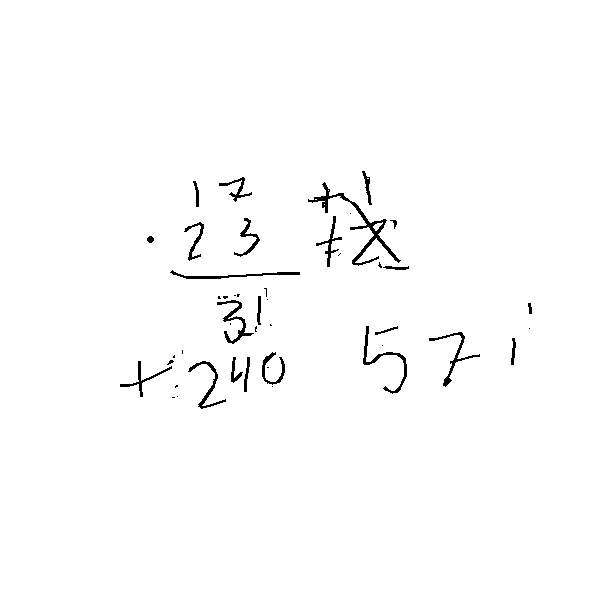 17
· 23
31
+ 240 571